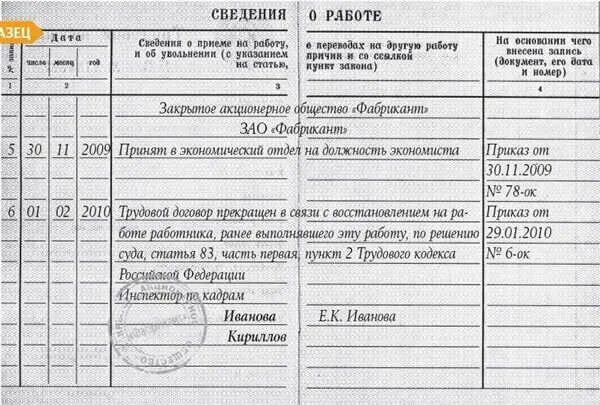 АЗЕЦ
СВЕДЕНИЯ О РАБОТЕ
№ записи
Дата
число месяц год
Сведения о приеме на работу, о переводах на другую работу
и об увольнении (с указанием причин и со ссылкой
на статью, пункт закона)
На основании чего
внесена запись
(документ, его дата
и номер)
1 2 3 4
Закрытое акционерное общество «Фабрикант»
ЗАО «Фабрикант»
5 30 11 2009 Принят в экономический отдел на должность экономиста Приказ от
30.11.2009
№ 78-ок
6 01 02 2010 Трудовой договор прекращен в связи с восстановлением на ра- Приказ от
боте работника, ранее выполнявшего эту работу, по решению 29.01.2010
суда, статья 83, часть первая, пункт 2 Трудового кодекса № 6-ок
Российской Федерации
Инспектор по кадрам
Иванова Е.К. Иванова
Кириллов